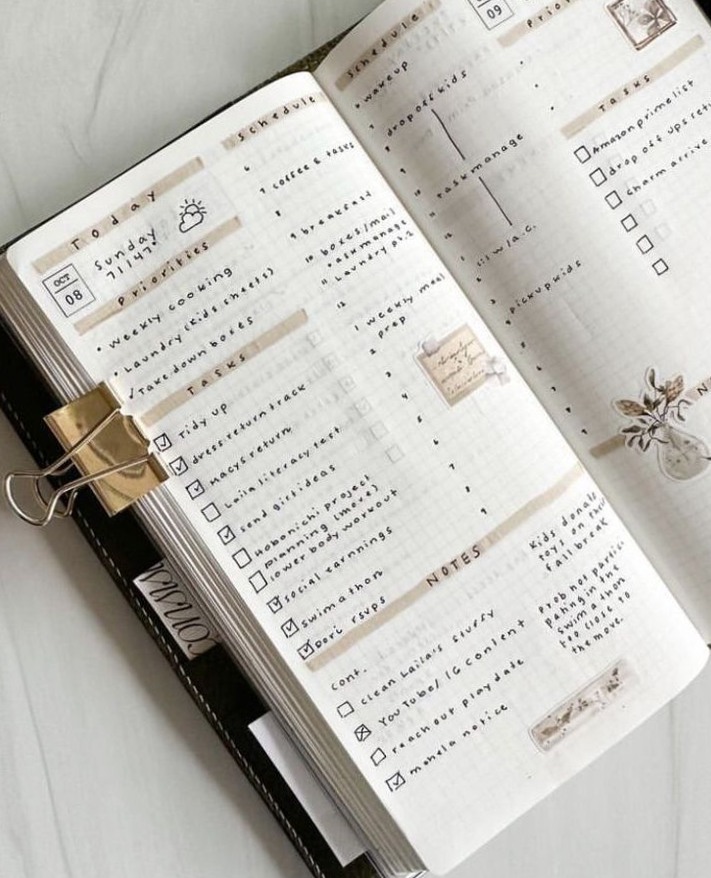 Today
OCT
08
Sunday
71|47°
Priorities
• weekly cooking
• Laundry (kids sheets)
✓ Take down boxes
TASKS
Tidy up
dress return track
macys return
Laila literacy test
send girl ideas
Hobonichi project
planning (more)
lower body workout
social earnnings
swimathon
Dori rsvps
Schedule
6
7 coffee & tasks
8
9 breakfast
10 boxes/mail
task manage
11 Laundry
12
1 weekly meal
prep
2
3
4
5
6
7
8
9
NOTES
cont.
clean Laila's stuffy
YouTube/IG content
reach out playdate
mohela notice
kids donate
toys on
fall break
Prob not partici-
pating in the
swimathon
too close to
the move.
Schedule
wakeup
7 drop off kids
8
9
10 task manage
11
12
w/a.c.
pickup kids
09
TASKS
Amazon prime list
drop off ups
charm arrive